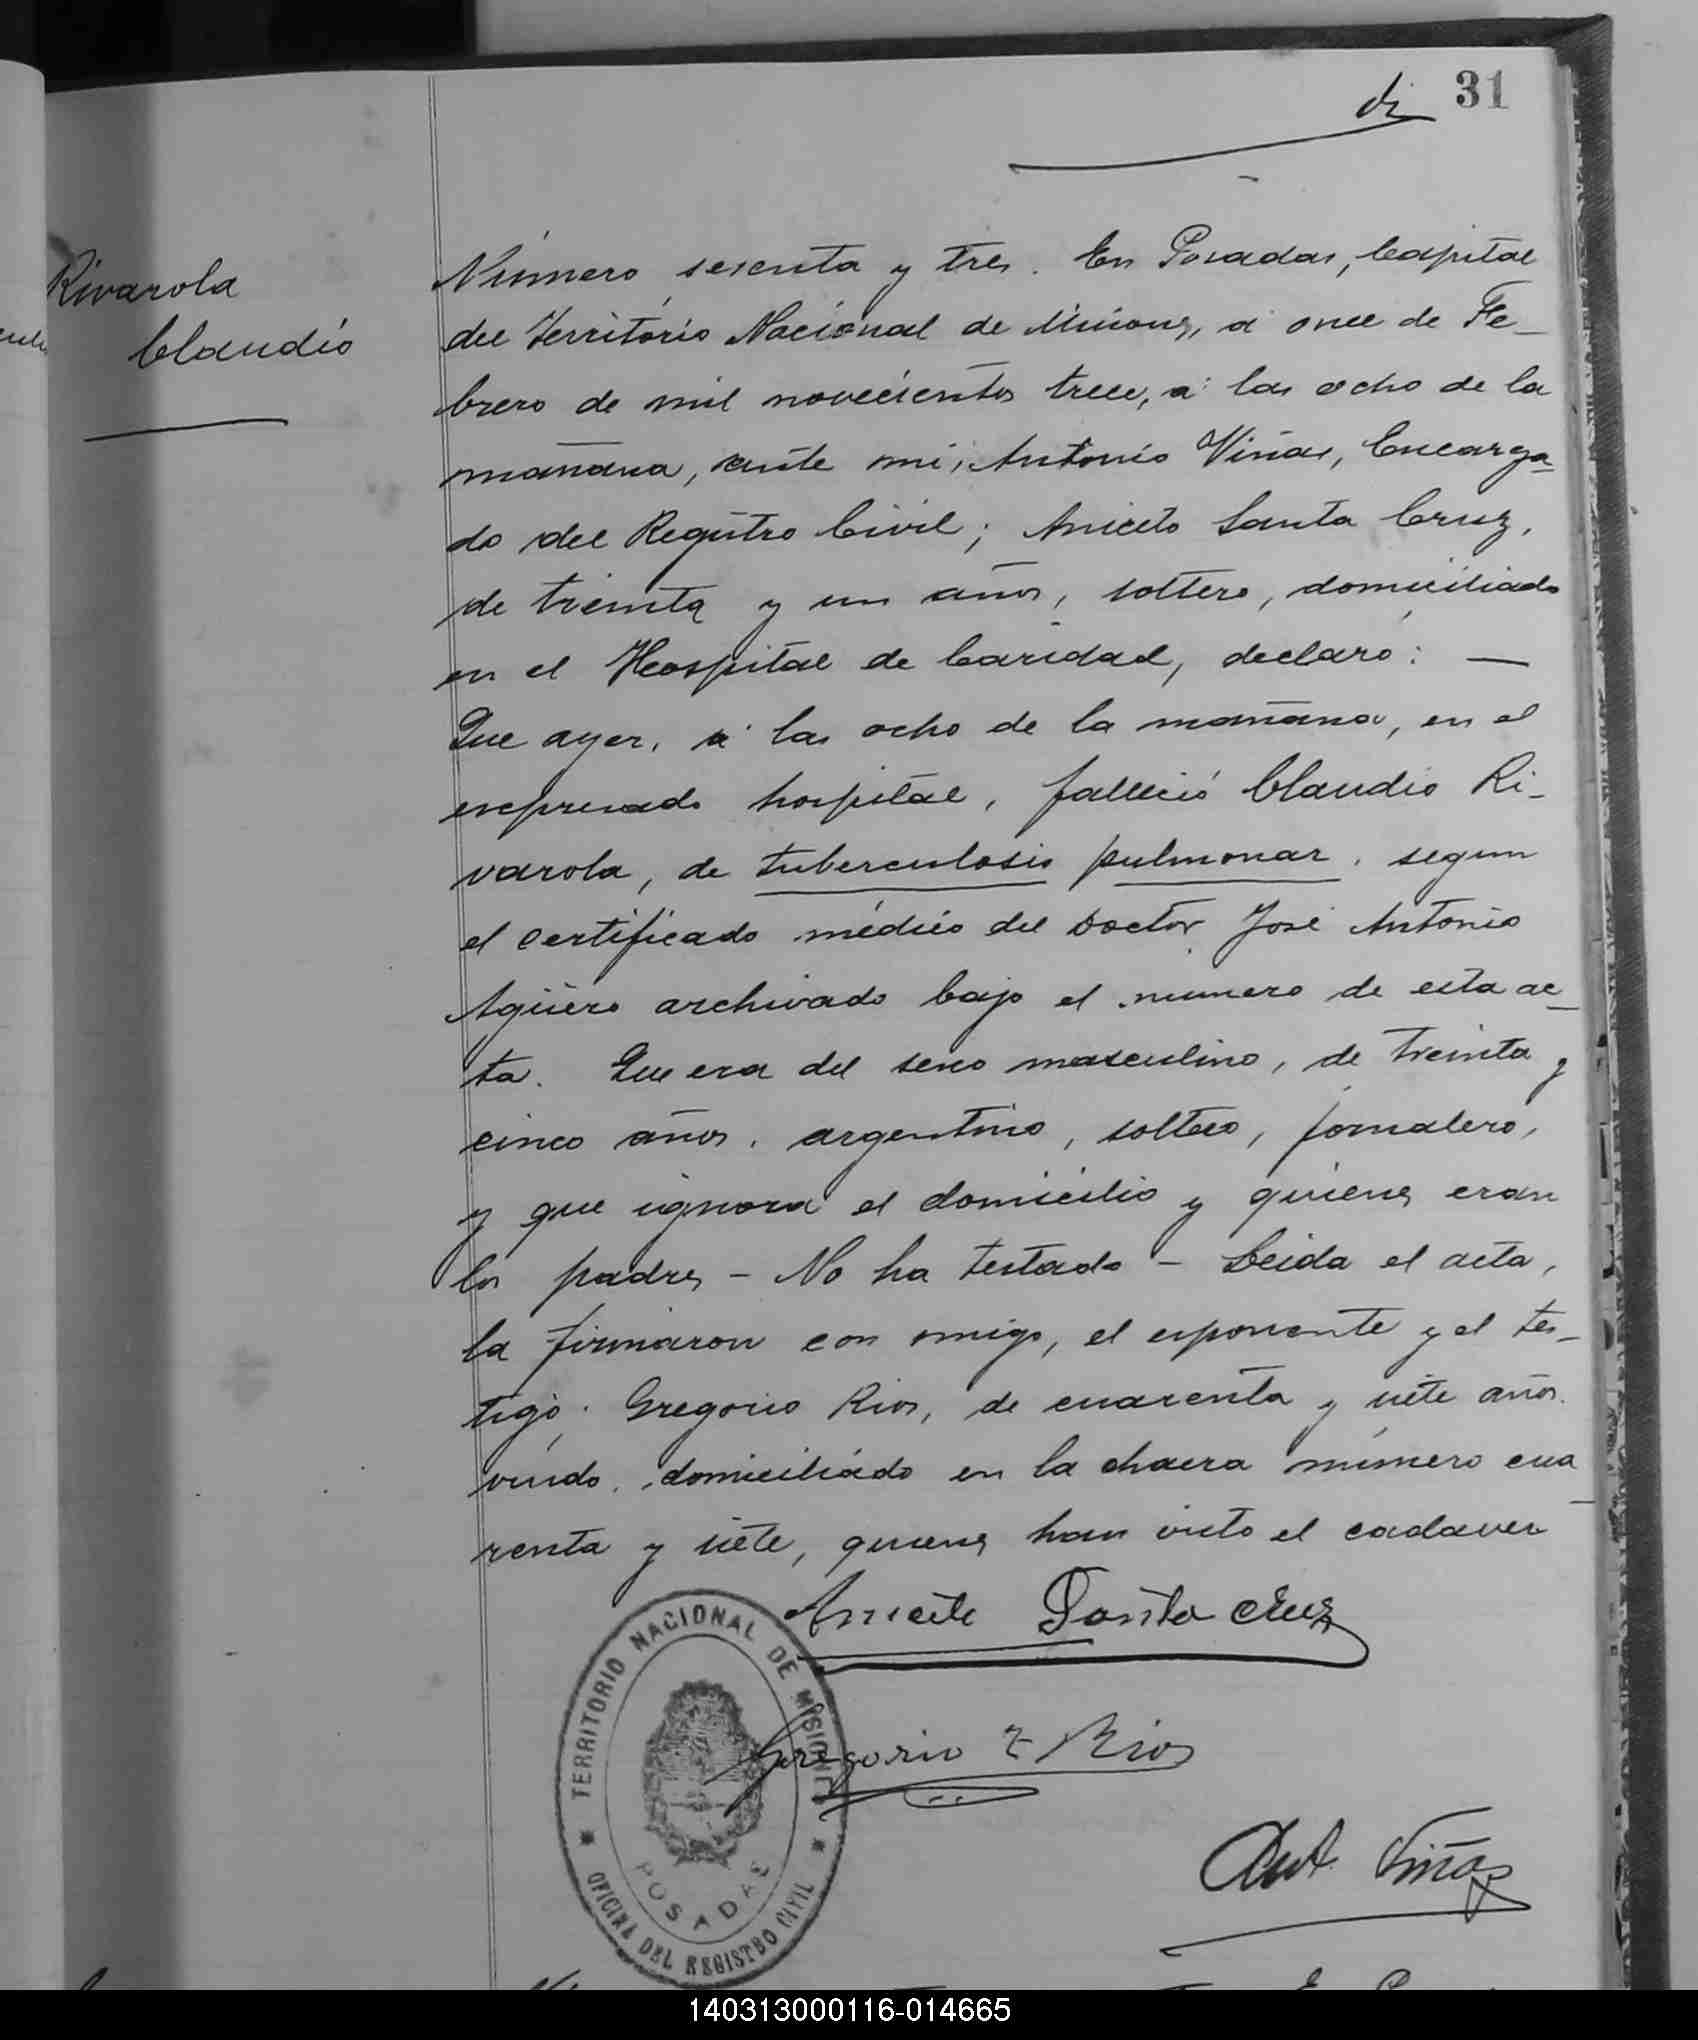 di 31
Rivarola
Claudio
Número sesenta y tres. En Posadas, Capital
del Territorio Nacional de Misiones, á once de Fe-
brero de mil novecientos trece, á las ocho de la
mañana, ante mi, Antonio Viñas, Encarga-
do del Registro Civil; Aniceto Santa Cruz,
de treinta y un años, soltero, domiciliado
en el Hospital de Caridad, declaró: —
Que ayer, á las ocho de la mañana, en el
expresado hospital, falleció Claudio Ri-
varola, de tuberculosis pulmonar, segun
el certificado médico del Doctor José Antonio
Agüero archivado bajo el número de esta ac-
ta. Que era del sexo masculino, de treinta y
cinco años, argentino, soltero, jornalero,
y que ignora el domicilio y quienes eran
los padres – No ha testado – Leida el acta,
la firmaron con migo, el exponente y el tes-
tigo: Gregorio Rios, de cuarenta y siete años,
viudo, domiciliado en la chacra número cua-
renta y siete, quienes han visto el cadaver
Aniceto Santa Cruz
Gregorio Z Rios
Ant. Viñas
TERRITORIO NACIONAL DE MISIONES
POSADAS
OFICINA DEL REGISTRO CIVIL
140313000116-014665